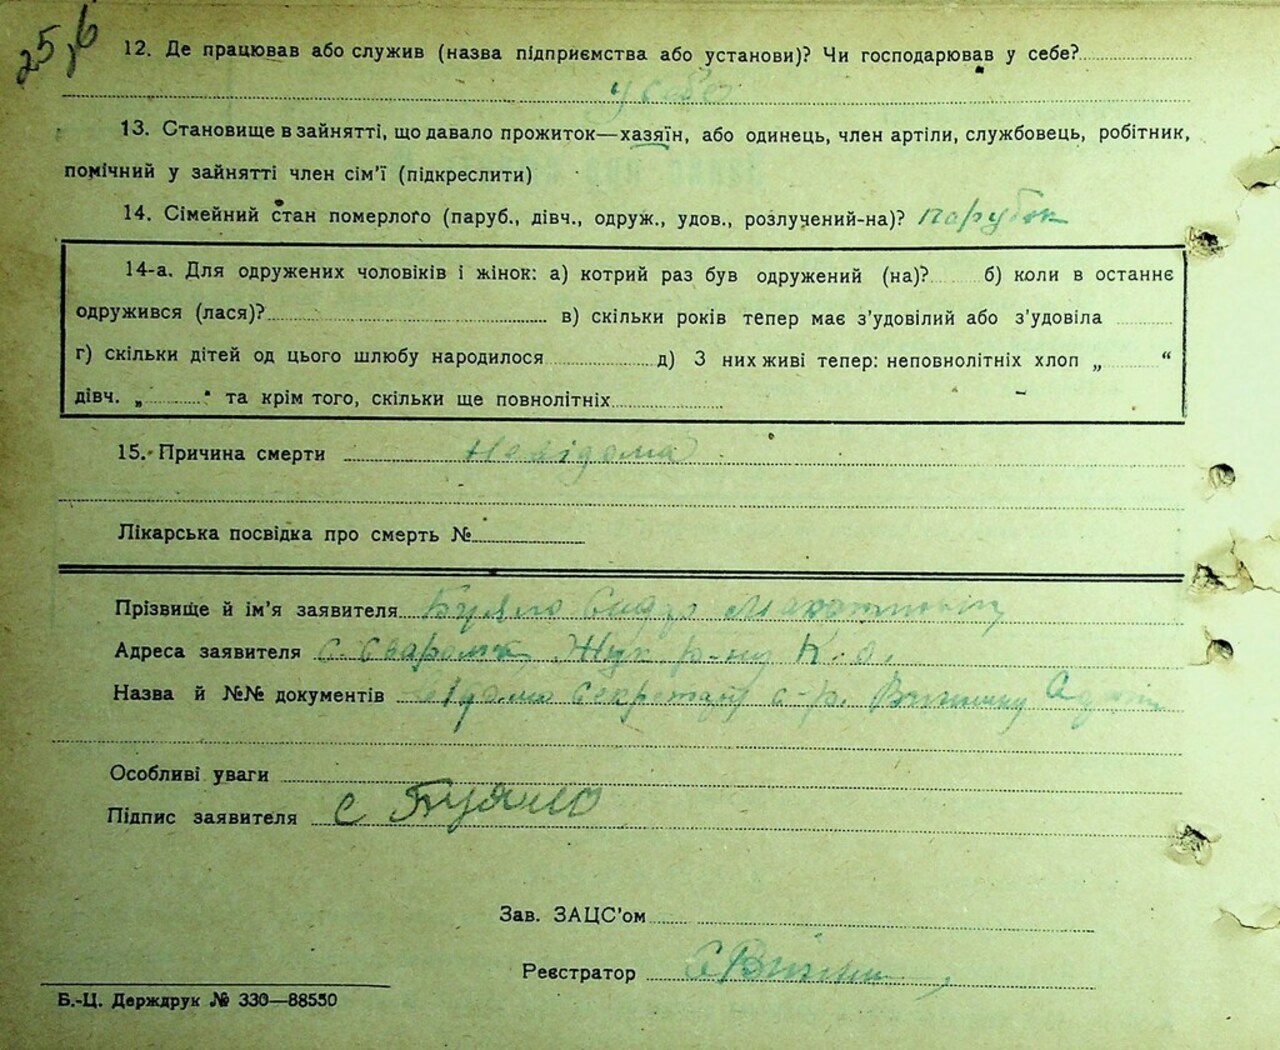 25,6
12. Де працював або служив (назва підприємства або установи)? Чи господарював у себе?
у себе
13. Становище в зайнятті, що давало прожиток—хазяїн, або одинець, член артіли, службовець, робітник,
помічний у зайнятті член сім'ї (підкреслити)
14. Сімейний стан померлого (паруб., дівч., одруж., удов., розлучений-на)? парубок
14-а. Для одружених чоловіків і жінок: а) котрий раз був одружений (на)? б) коли в останнє
одружився (лася)? в) скільки років тепер має з'удовілий або з'удовіла
г) скільки дітей од цього шлюбу народилося д) З них живі тепер: неповнолітніх хлоп „ “
дівч. „ " та крім того, скільки ще повнолітніх
15. Причина смерти Невідома
Лікарська посвідка про смерть №
Прізвище й ім'я заявителя
Адреса заявителя с. р-ну К. о.
Назва й №№ документів с-р.
Особливі уваги
Підпис заявителя С
Зав. ЗАЦС'ом
Реєстратор
Б.-Ц. Держдрук № 330—88550